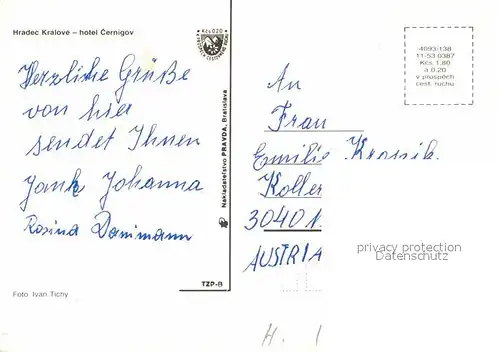 Hradec Králové – hotel Černigov
Kčs 0,20
Herzliche Grüße
von hier
sendet Ihnen
Johanna
Rosina Dammann
Foto Ivan Tichy
Nakladateľstvo PRAVDA, Bratislava
TZP-B
4093/138
11-53 0387
Kčs. 1,80
a 0,20
v prospěch
cest. ruchu
An
Frau
Emilie
Koller
3040 1
AUSTRIA
privacy protection
Datenschutz
H. 1